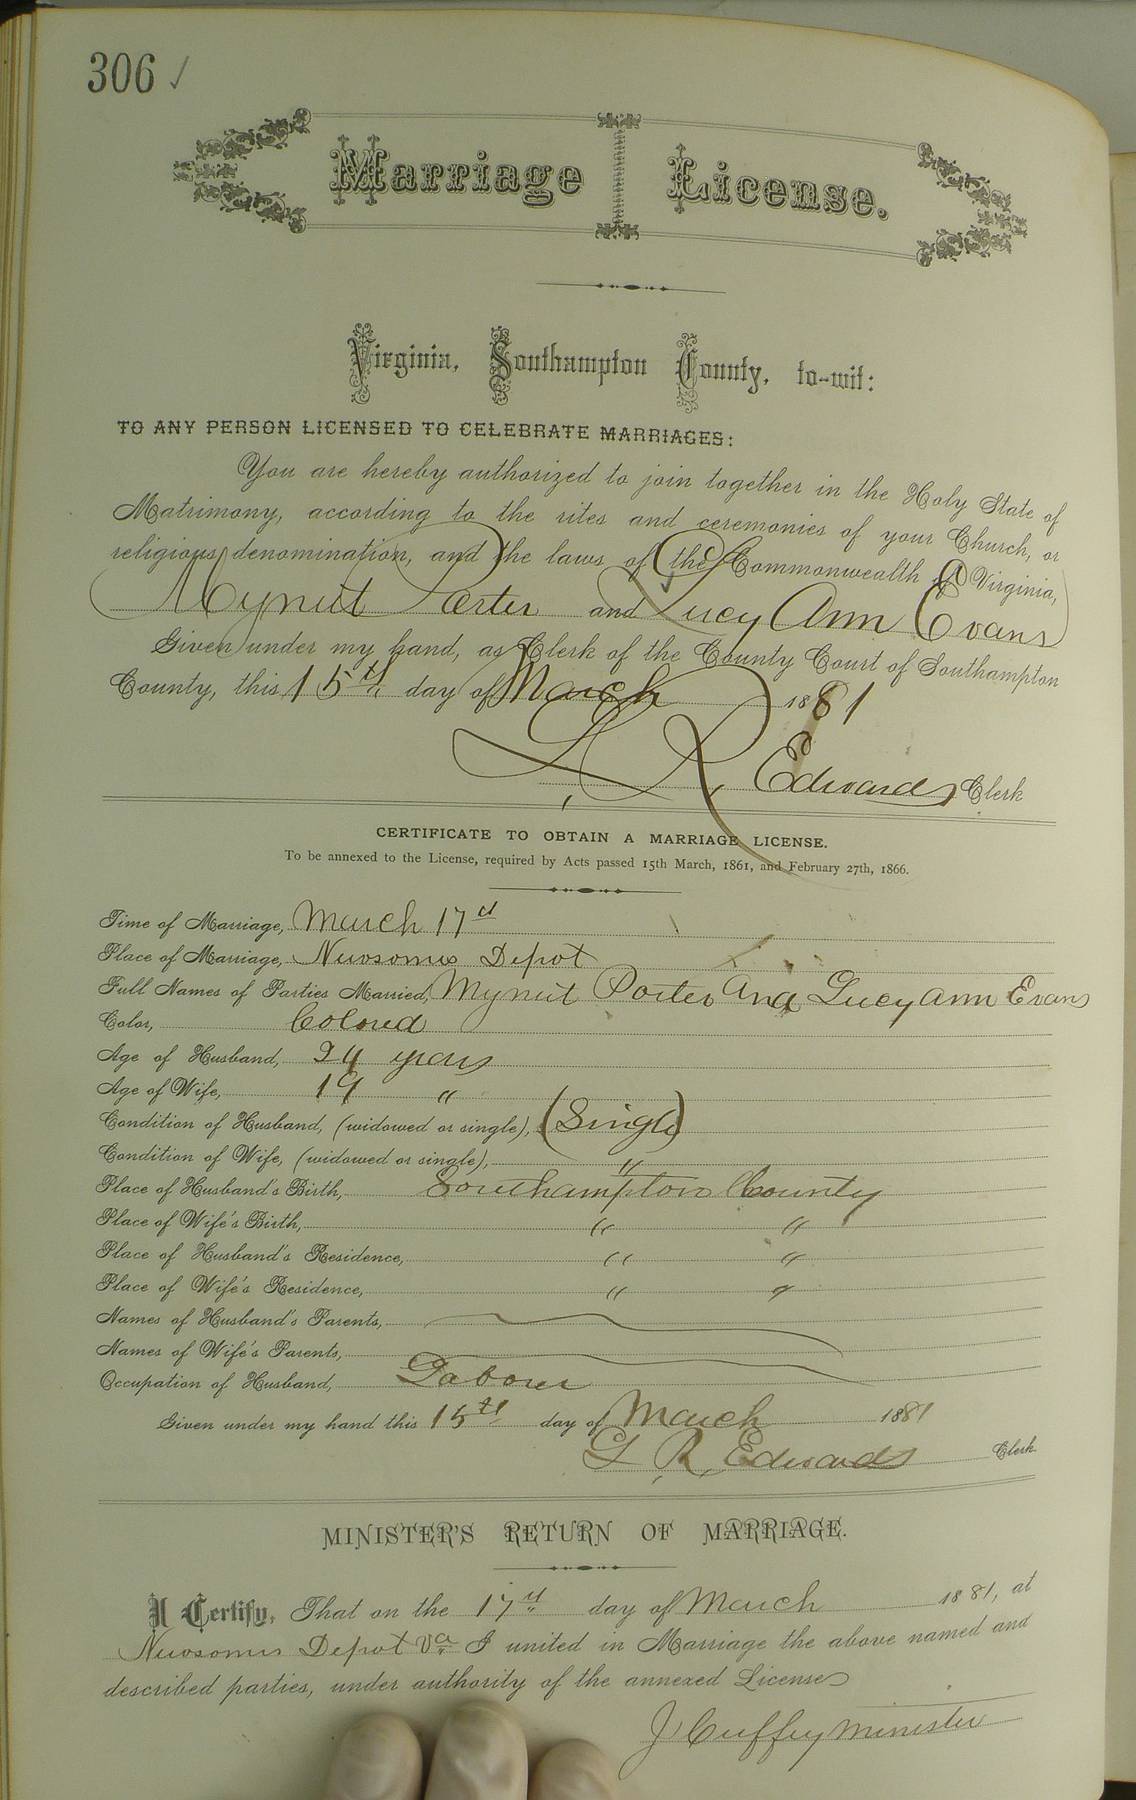 306 ✓
Marriage License.
Virginia, Southampton County, to-wit:
TO ANY PERSON LICENSED TO CELEBRATE MARRIAGES:
You are hereby authorized to join together in the Holy State of
Matrimony, according to the rites and ceremonies of your Church, or
religious denomination, and the laws of the Commonwealth of Virginia,
Mynut Porter and Lucy Ann Evans
Given under my hand, as Clerk of the County Court of Southampton
County, this 15th day of March 1881
L. R. Edwards Clerk
CERTIFICATE TO OBTAIN A MARRIAGE LICENSE.
To be annexed to the License, required by Acts passed 15th March, 1861, and February 27th, 1866.
Time of Marriage, March 17th
Place of Marriage, Newsoms Depot
Full Names of Parties Married, Mynut Porter And Lucy Ann Evans
Color, Colored
Age of Husband, 24 years
Age of Wife, 19 "
Condition of Husband, (widowed or single), (Single)
Condition of Wife, (widowed or single), "
Place of Husband's Birth, Southampton County
Place of Wife's Birth, " "
Place of Husband's Residence, " "
Place of Wife's Residence, " "
Names of Husband's Parents,
Names of Wife's Parents,
Occupation of Husband, Laborer
Given under my hand this 15th day of March 1881
L. R. Edwards Clerk
MINISTER'S RETURN OF MARRIAGE.
I Certify, That on the 17th day of March 1881, at
Newsoms Depot Va I united in Marriage the above named and
described parties, under authority of the annexed License
J Cuffey minister